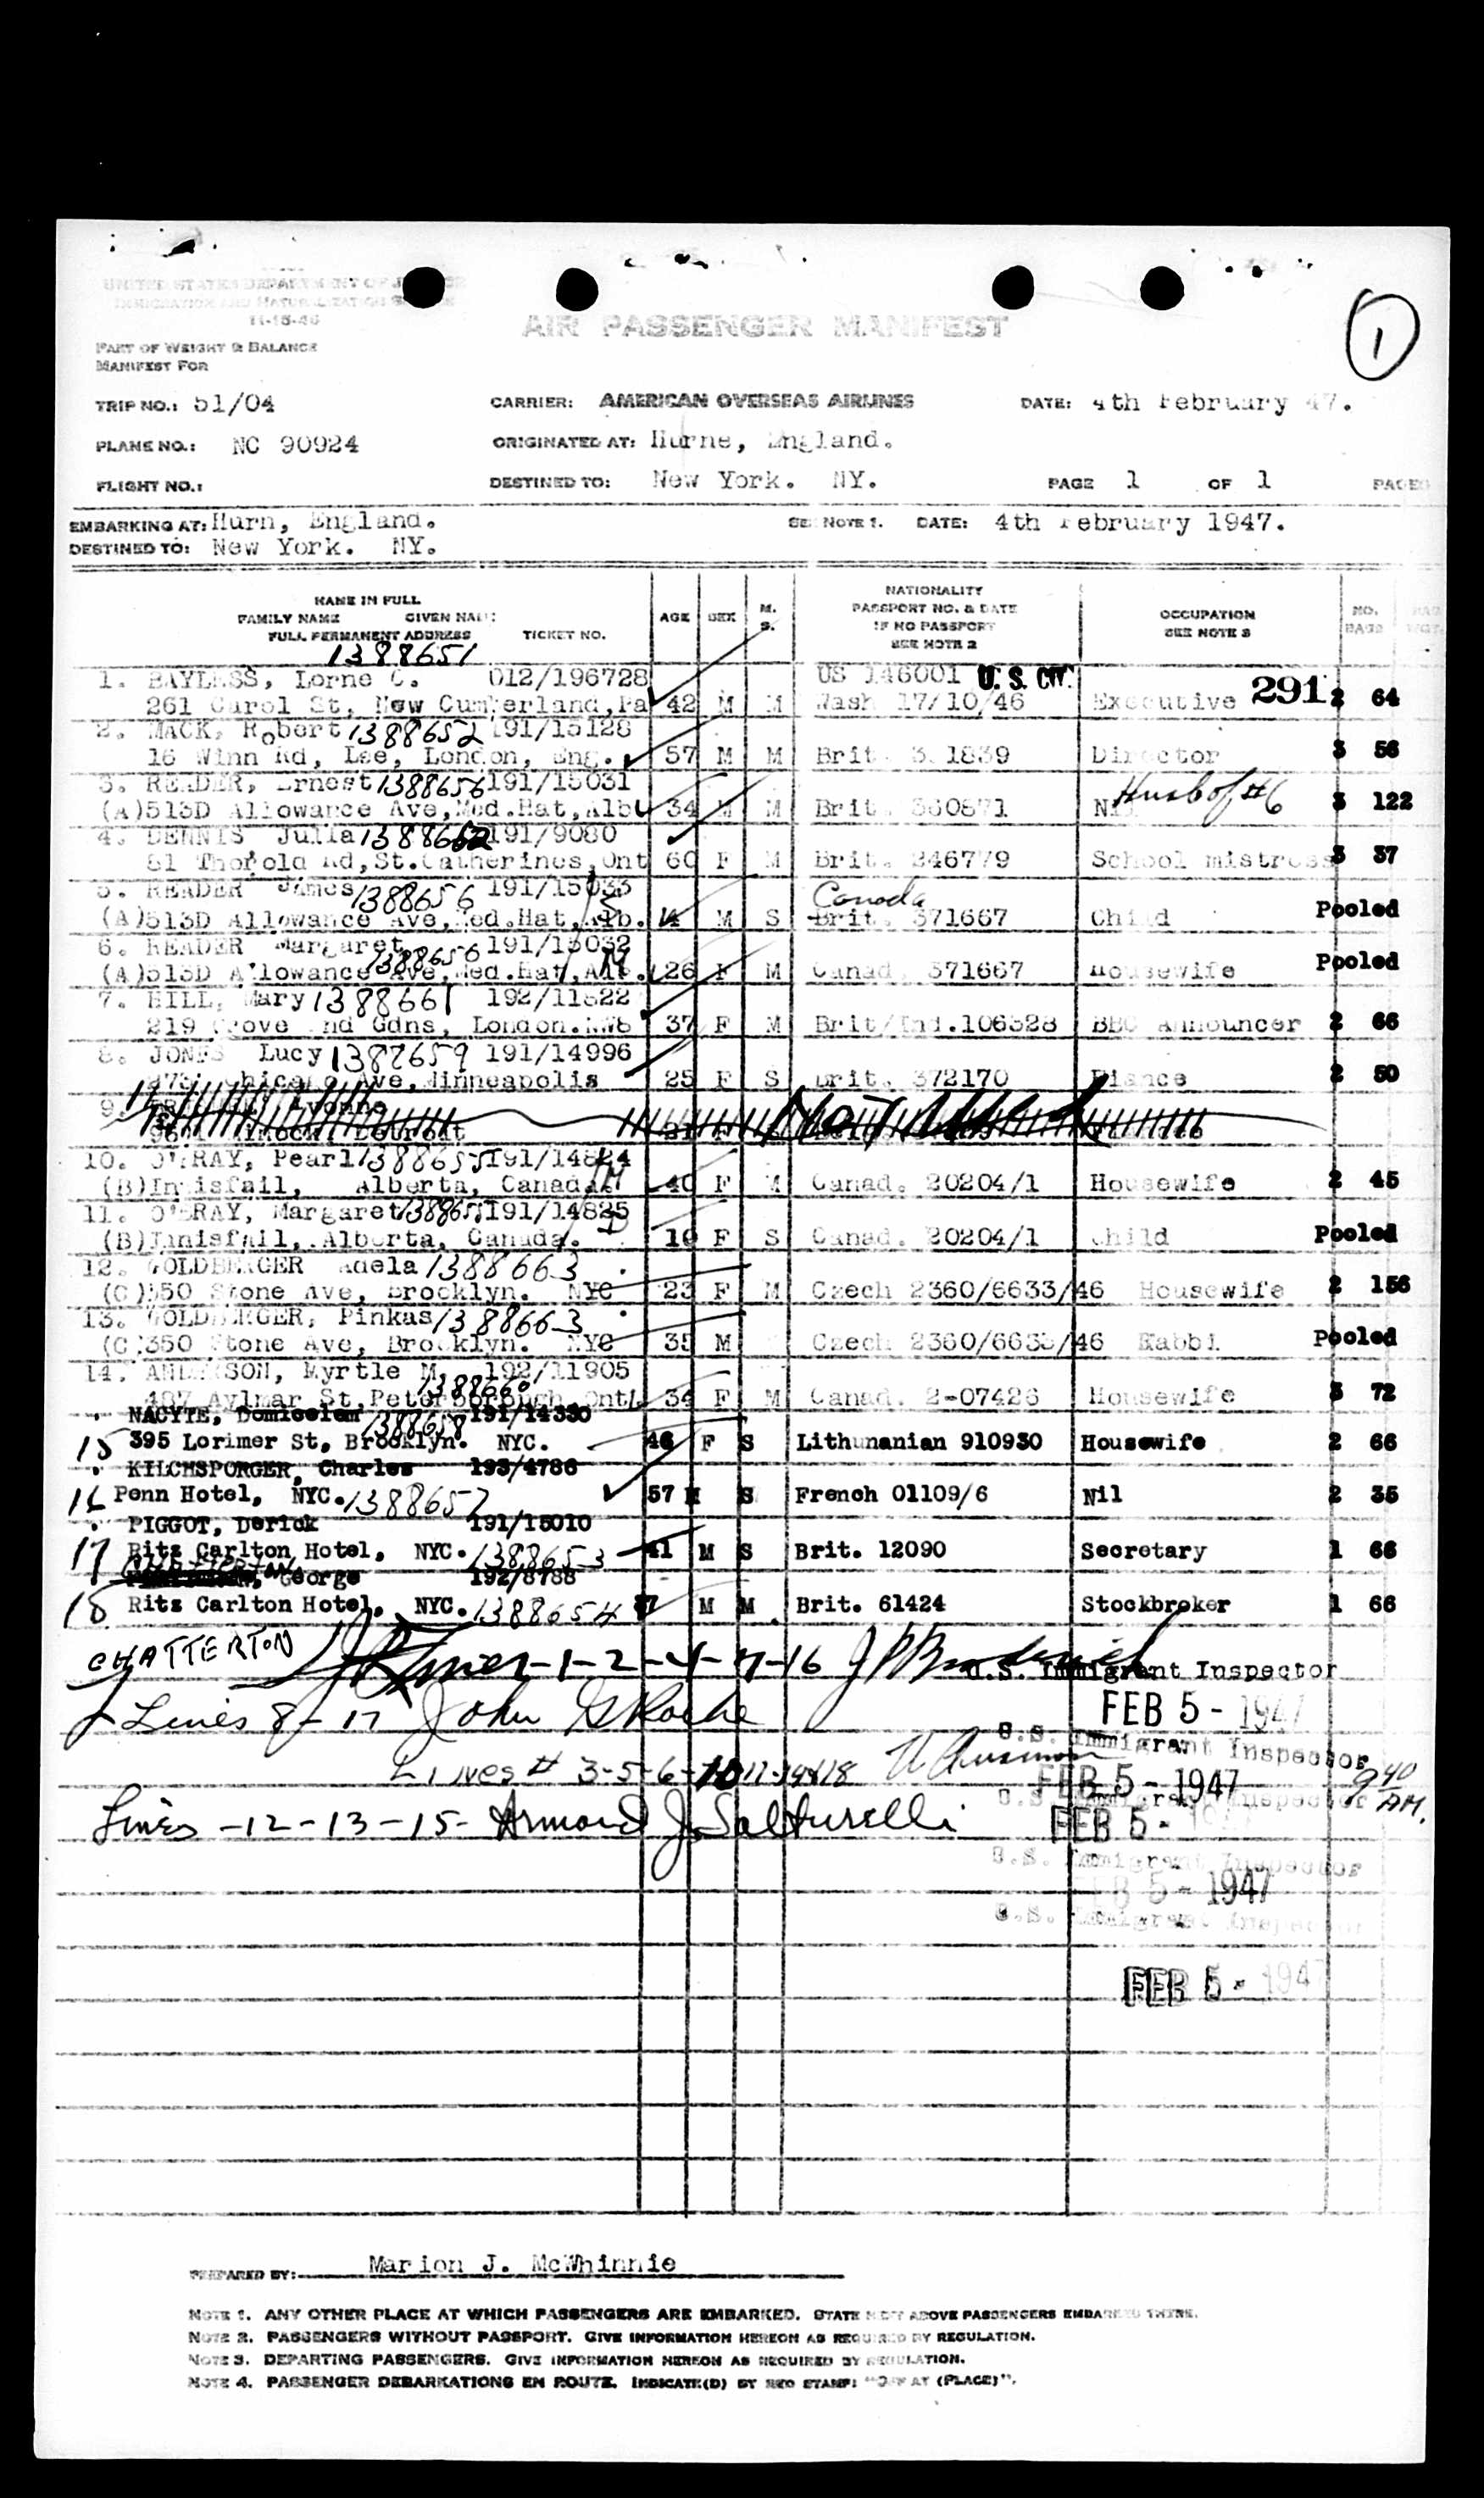 UNITED STATES DEPARTMENT OF JUSTICE
IMMIGRATION AND NATURALIZATION SERVICE
11-15-46
AIR PASSENGER MANIFEST
1
PART OF WEIGHT & BALANCE
MANIFEST FOR
TRIP NO.: 51/04 CARRIER: AMERICAN OVERSEAS AIRLINES DATE: 4th February 47.
PLANE NO.: NC 90924 ORIGINATED AT: Hurne, England.
FLIGHT NO.: DESTINED TO: New York. NY. PAGE 1 OF 1 PAGES
EMBARKING AT: Hurn, England. SEE NOTE 1. DATE: 4th February 1947.
DESTINED TO: New York. NY.
NAME IN FULL
FAMILY NAME GIVEN NAME
FULL PERMANENT ADDRESS TICKET NO. AGE SEX M. S. NATIONALITY PASSPORT NO. & DATE IF NO PASSPORT SEE NOTE 2 OCCUPATION SEE NOTE 3 NO. BAGS BAG WGT.
1388651
1. BAYLESS, Lorne C. 012/196728 US 146001 U.S. CIT.
261 Carol St, New Cumberland,Pa 42 M M Wash 17/10/46 Executive 291 2 64
2. MACK, Robert 1388652 191/15128
16 Winn Rd, Lee, London, Eng. 57 M M Brit. 1839 Director 3 56
3. READER, Ernest 1388656 191/15031
(A)513D Allowance Ave,Med.Hat,Alb 34 M M Brit. 360871 Husb of #6 3 122
4. DENNIS, Julia 191/9080
81 Thorold Rd,St.Catherines,Ont 60 F M Brit. 246779 School mistress 3 37
5. READER James 1388656 191/15033 Canada
(A)513D Allowance Ave,Med.Hat,Alb. 4 M S Brit. 371667 Child Pooled
6. READER Margaret 1388656 191/15032
(A)513D Allowance Ave,Med.Hat,Alb. 26 F M Canad. 371667 Housewife Pooled
7. HILL, Mary 1388661 192/11822
219 Grove End Gdns, London.NW8 37 F M Brit/Ind.106328 BBC Announcer 2 66
8. JONES Lucy 1388659 191/14996
Chicago Ave, Minneapolis 25 F S Brit. 372170 Fiance 2 50
9. Yvonne
Detroit
10. O'BRAY, Pearl 1388655 191/14824
(B)Innisfail, Alberta, Canada. 40 F M Canad. 20204/1 Housewife 2 45
11. O'BRAY, Margaret 1388655 191/14825
(B)Innisfail, Alberta, Canada. 10 F S Canad. 20204/1 Child Pooled
12. GOLDBERGER Adela 1388663
(C)350 Stone Ave, Brooklyn. NYC 23 F M Czech 2360/6633/46 Housewife 2 156
13. GOLDBERGER, Pinkas 1388663
(C)350 Stone Ave, Brooklyn. NYC 35 M Czech 2360/6633/46 Rabbi Pooled
14. ANDERSON, Myrtle M. 192/11905
1388660
487 Aylmar St,Peterborough,Ont. 34 F M Canad. 2-07426 Housewife 3 72
NACYTE, Domicelem 1388658 191/14330
15 395 Lorimer St, Brooklyn. NYC. 46 F S Lithunanian 910930 Housewife 2 66
KILCHSPORGER, Charles 193/4786
16 Penn Hotel, NYC. 1388657 57 M S French 01109/6 Nil 2 35
PIGGOT, Derick 191/15010
17 Ritz Carlton Hotel, NYC. 1388653 41 M S Brit. 12090 Secretary 1 66
George 192/8788
18 Ritz Carlton Hotel, NYC. 1388654 37 M M Brit. 61424 Stockbroker 1 66
CHATTERTON
Lines-1-2-4-7-16
U.S. Immigrant Inspector
FEB 5 - 1947
Lines 8-17 John G Roche
U.S. Immigrant Inspector
Lines # 3-5-6-10-11-14&18
FEB 5 - 1947
9 40 AM.
U.S. Immigrant Inspector
Lines -12-13-15- Armand J. Salturelli
FEB 5 - 1947
U.S. Immigrant Inspector
FEB 5 - 1947
U.S. Immigrant Inspector
FEB 5 - 1947
PREPARED BY: Marion J. McWhinnie
NOTE 1. ANY OTHER PLACE AT WHICH PASSENGERS ARE EMBARKED. STATE NEXT ABOVE PASSENGERS EMBARKED THERE.
NOTE 2. PASSENGERS WITHOUT PASSPORT. GIVE INFORMATION HEREON AS REQUIRED BY REGULATION.
NOTE 3. DEPARTING PASSENGERS. GIVE INFORMATION HEREON AS REQUIRED BY REGULATION.
NOTE 4. PASSENGER DEBARKATIONS EN ROUTE. INDICATE(D) BY RED STAMP: "OFF AT (PLACE)".